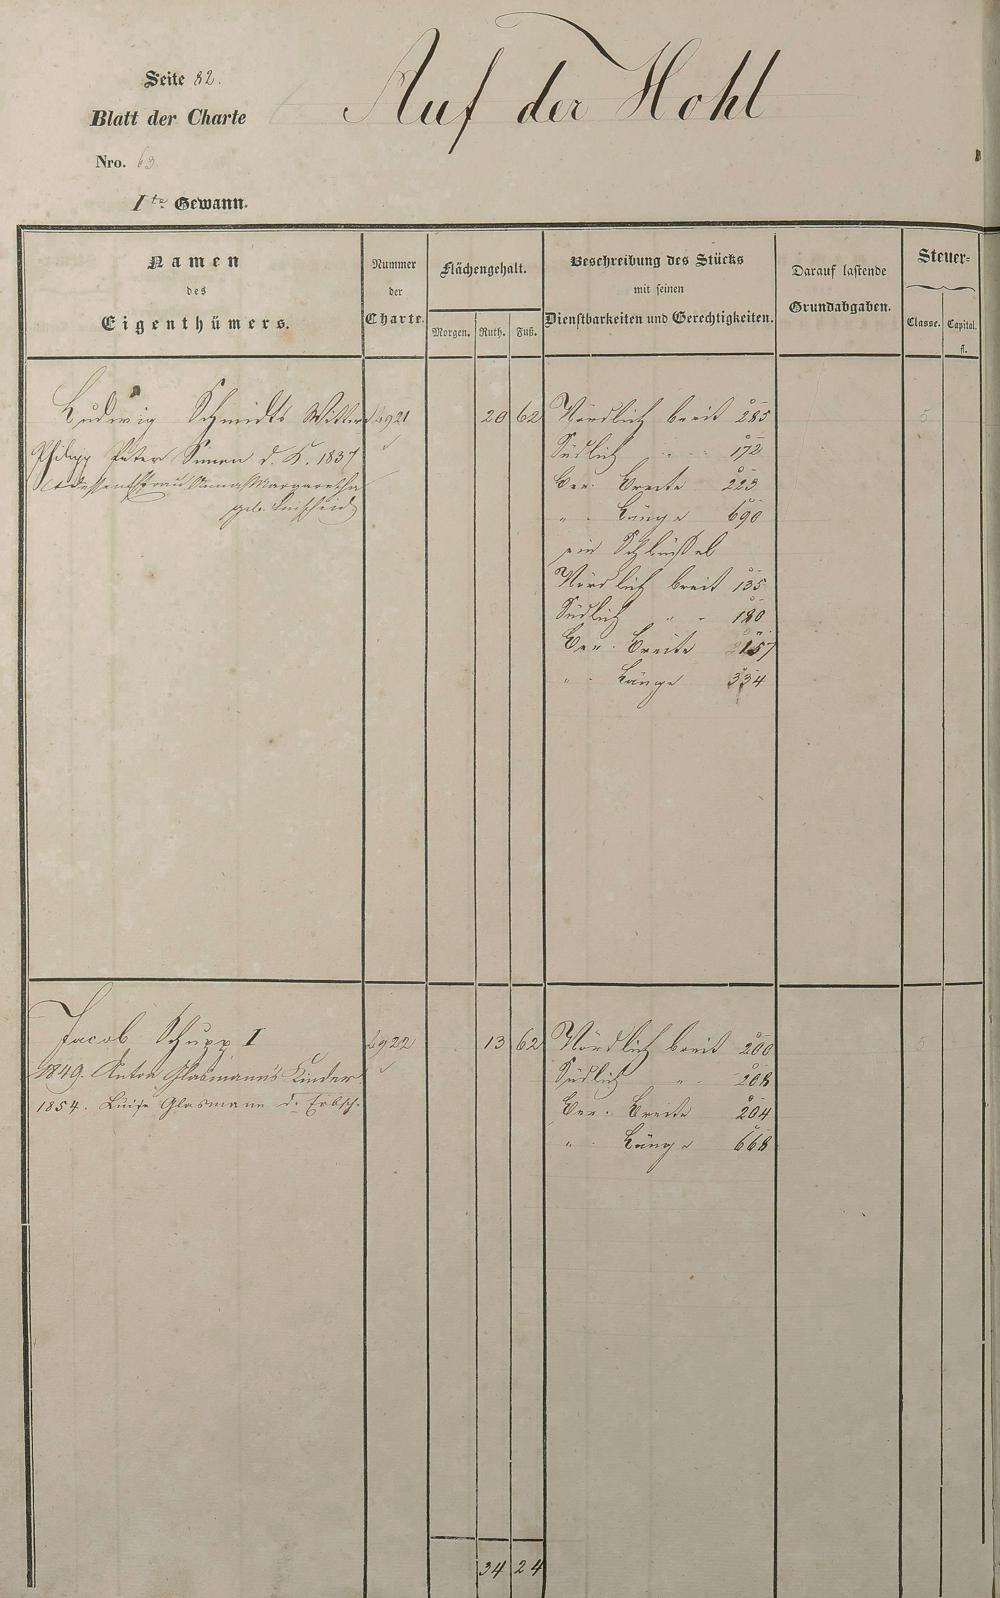 Seite 82.
Auf der Hohl
Blatt der Charte
Nro. 63
Ite Gewann.
Namen
des
Eigenthümers.
Nummer
der
Charte.
Flächengehalt.
Morgen.
Ruth.
Fuß.
Beschreibung des Stücks
mit seinen
Dienstbarkeiten und Gerechtigkeiten.
Darauf lastende
Grundabgaben.
Steuer-
Classe.
Capital.
fl.
Ludwig Schmidts Wittwe
6921
20
62
Nördlich breit 285
5
Philipp Peter Simon d. K. 1837
Südlich " - 172
dessen Frau Anna Margaretha
Ber. Breite 223
geb.
" Länge 690
ein Schlüssel
Nördlich breit 135
Südlich " - 180
Ber. Breite 157
" Länge 334
Jacob Schupp I
6922
13
62
Nördlich breit 200
5
1849. Anton Glasmann's Kinder
Südlich " - 208
1854. Luise Glasmann d. Erbsch.
Ber. Breite 204
" Länge 668
34
24